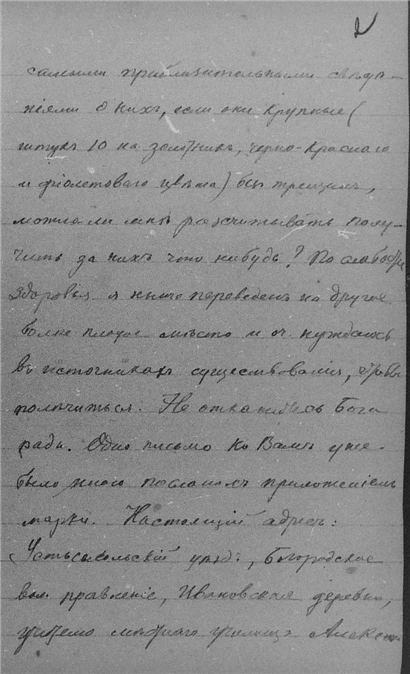 2
самыми приблизительными свѣдѣ-
ніями о нихъ, если они крупные (
штукъ 10 на золотникъ, черно-краснаго
и фіолетоваго цвѣта) безъ трещинъ,
можно ли мнѣ разсчитывать полу-
чить за нихъ что нибудь? По слабости
здоровья я нынѣ переведенъ на другое
болѣе плохое мѣсто и оч. нуждаюсь
въ источникахъ существованія, чтобы
полѣчиться. Не откажитесь Бога
ради. Одно письмо къ Вамъ уже
было мною послано съ приложеніемъ
марки. Настоящій адресъ:
Устьсысольскій уѣздъ, Богородское
вол. правленіе, Ивановская деревня,
училища